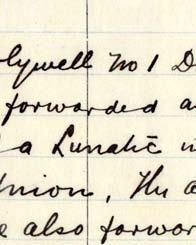 olywell No 1 D
forwarded a
a Lunatic in
Union. The a
e also forwar